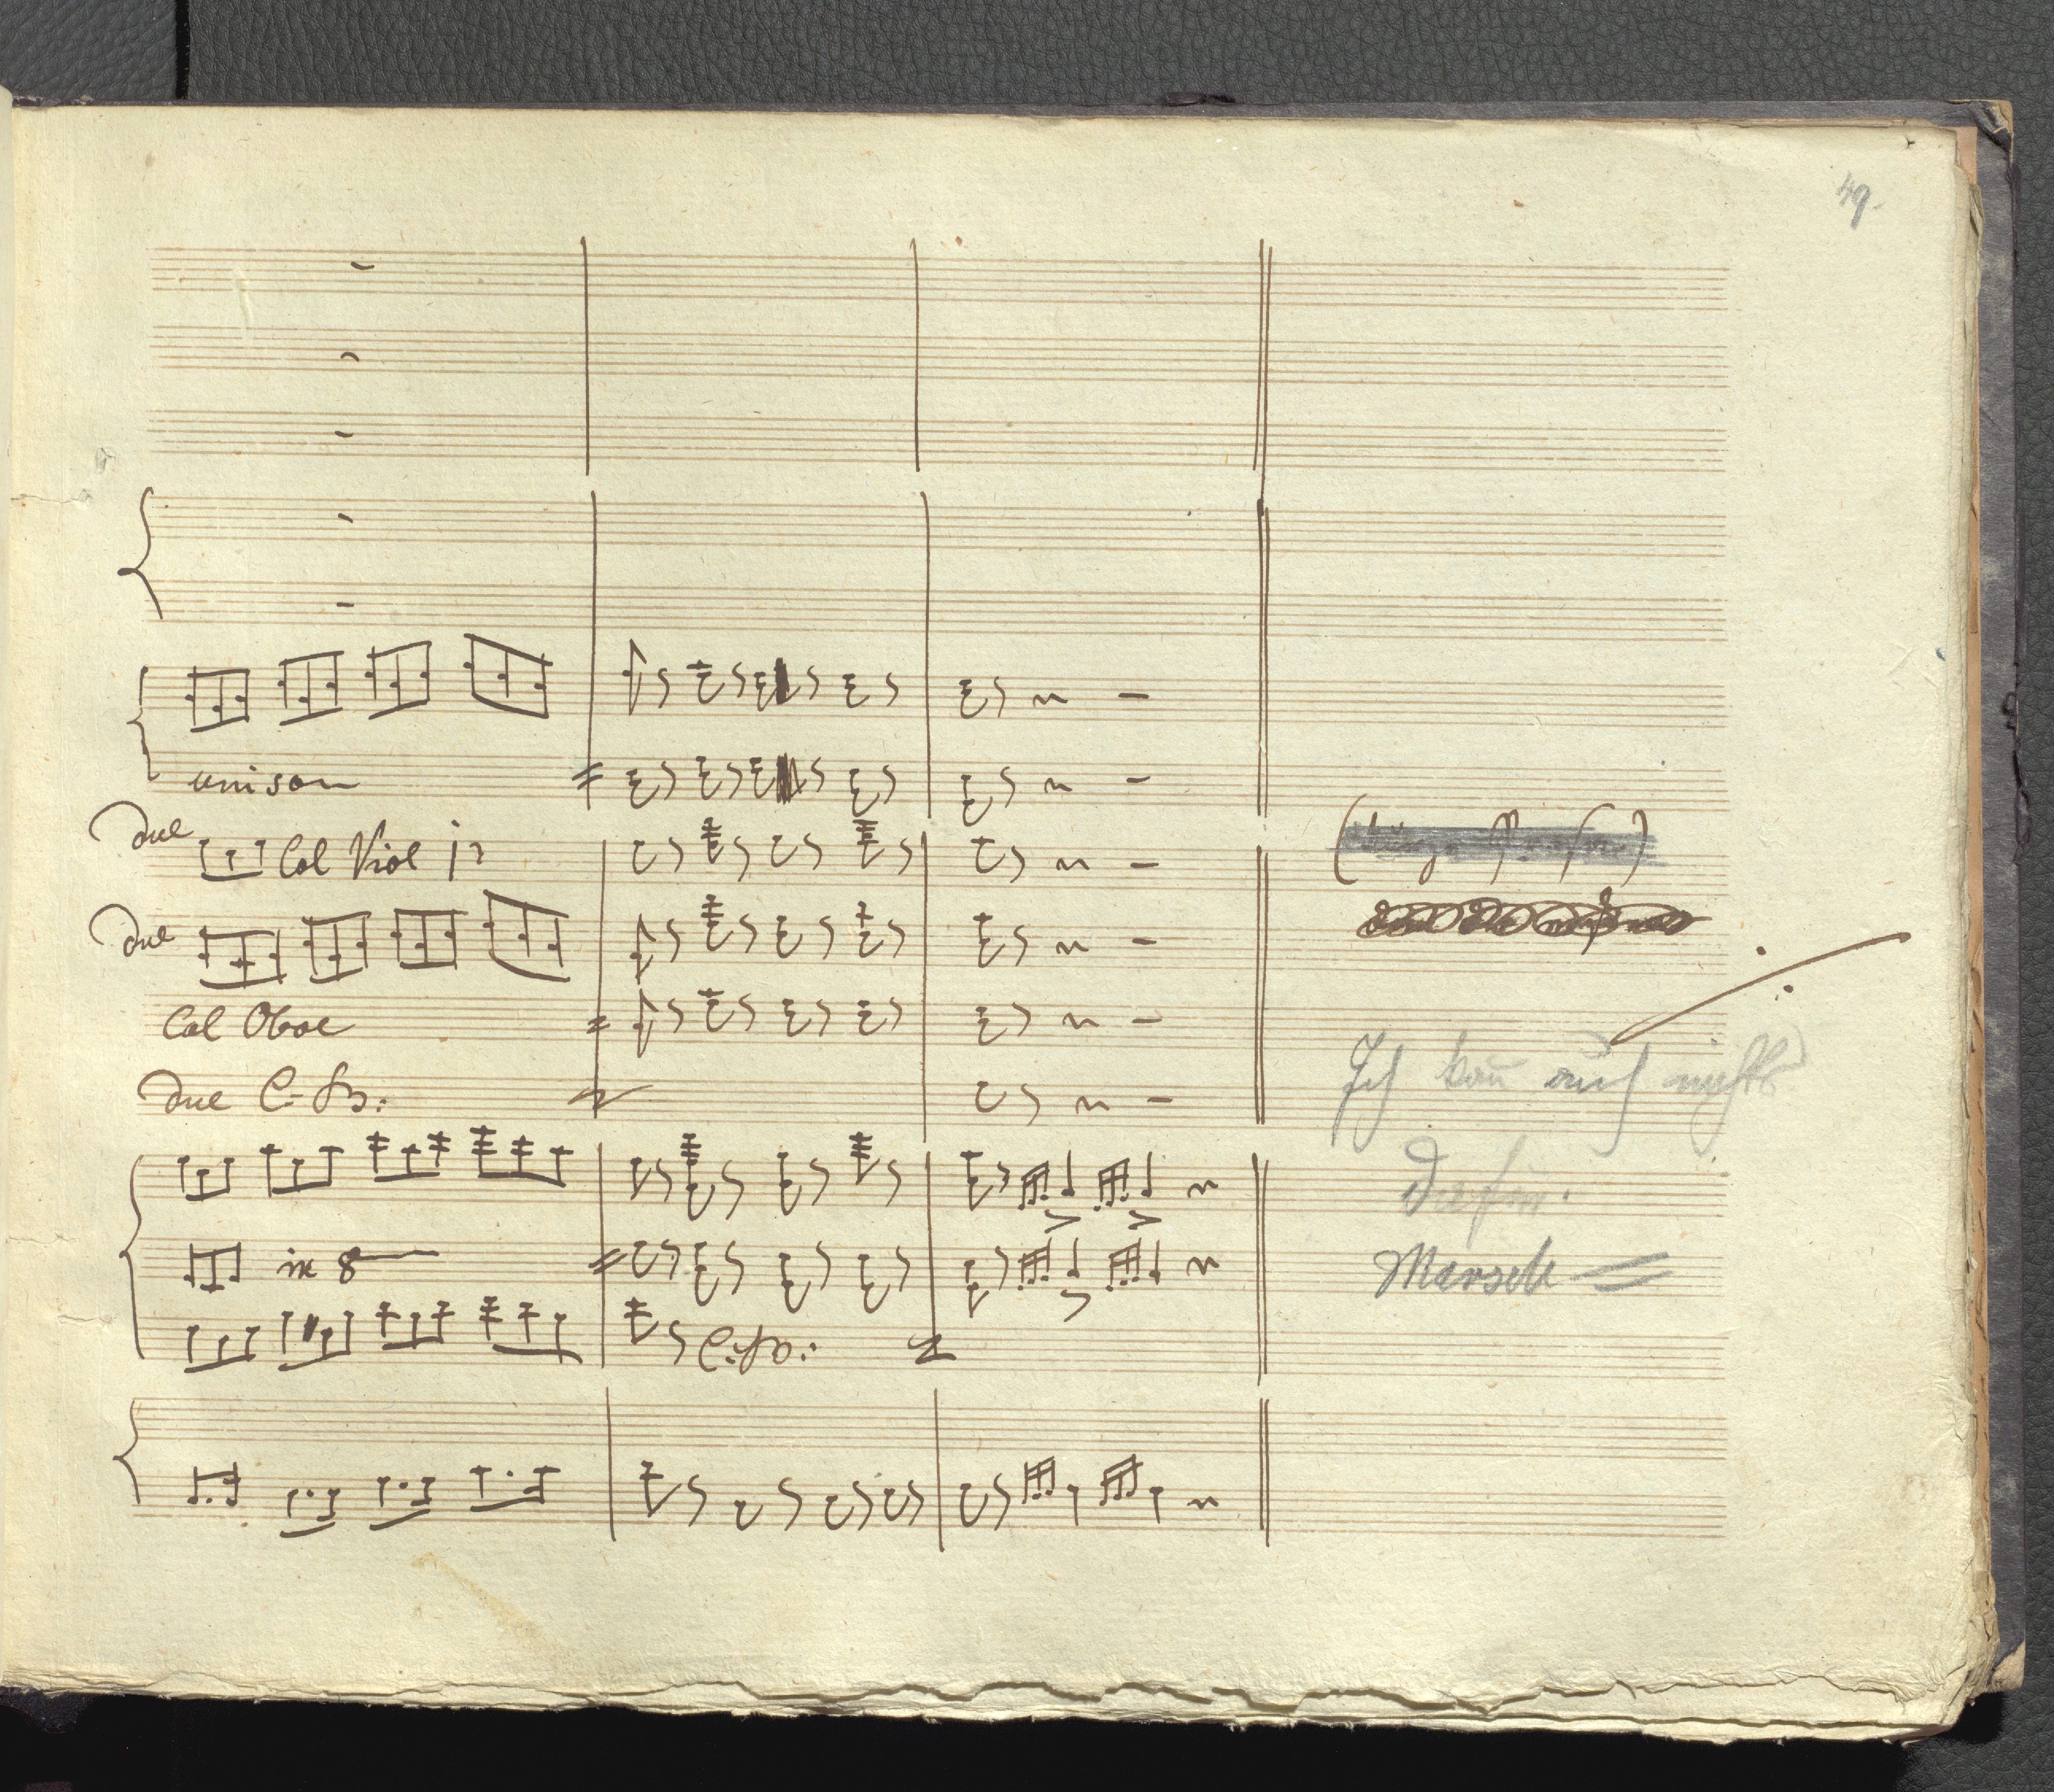 49.
unison
due
Col Viol 1º
due
Col Oboe
due C: B:
in 8
C: B:
Ich kan̄ auch nichts
dafür.
Marsch